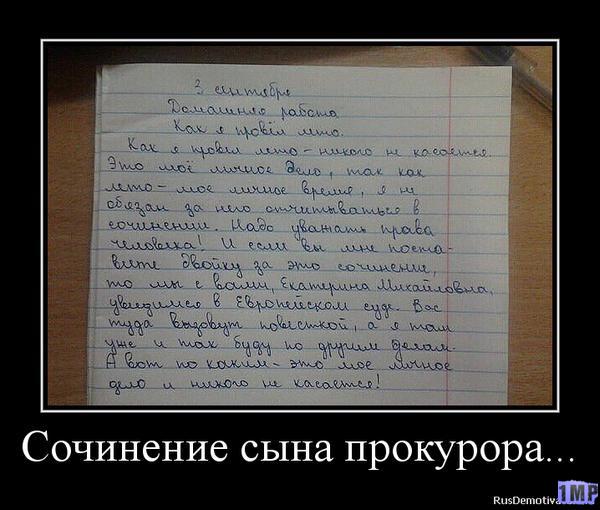 3 сентября
Домашняя работа
Как я провёл лето.
Как я провёл лето - никого не касается.
Это моё личное дело, так как
лето - моё личное время, я не
обязан за него отчитываться в
сочинении. Надо уважать права
человека! И если вы мне поста-
вите двойку за это сочинение,
то мы с вами, Екатерина Михайловна,
увидимся в Европейском суде. Вас
туда вызовут повесткой, а я там
уже и так буду по другим делам.
А вот по каким - это мое личное
дело и никого не касается!
Сочинение сына прокурора...
1MP